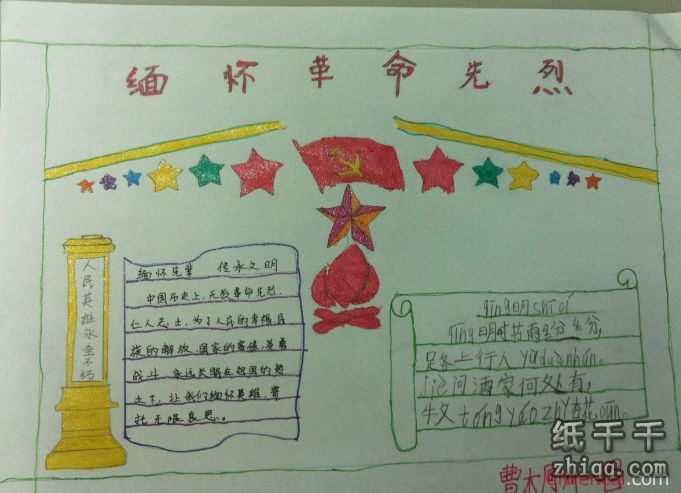 缅怀革命先烈
人民英雄永垂不朽
缅怀先辈 传承文明
中国历史上,无数革命先烈、
仁人志士,为了人民的幸福民
族的解放、国家的富强、英勇
战斗,永远长眠在祖国的热
土下,让我们缅怀英雄,寄
托无限哀思。
qīng明shī cí
qīng明时节雨纷纷,
路上行人yù duàn hún。
jiè问酒家何处有,
牧tóng yáo zhǐ杏花cūn。
曹
纸千千
zhiqq.com